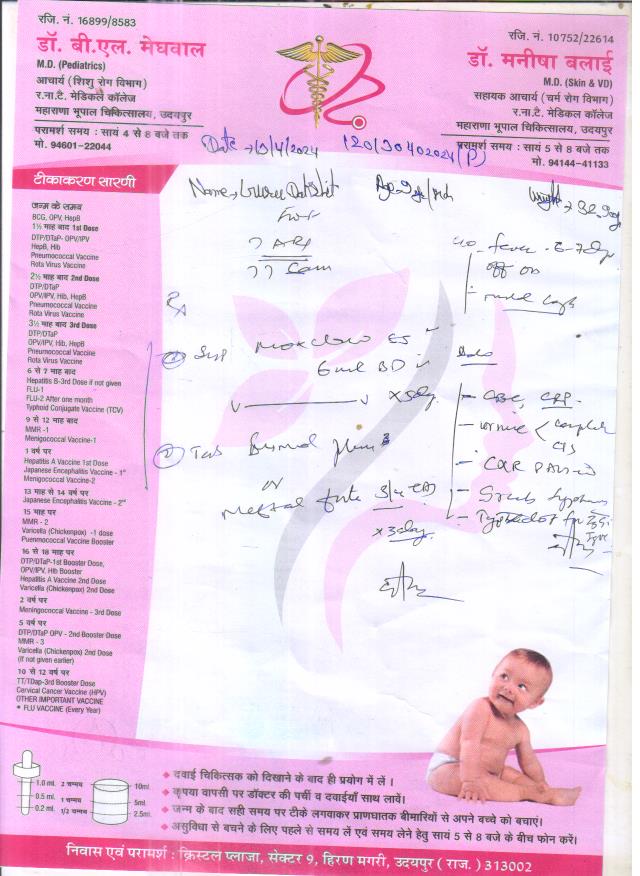 रजि. नं. 16899/8583
डॉ. बी.एल. मेघवाल
M.D. (Pediatrics)
आचार्य (शिशु रोग विभाग)
र.ना.टै. मेडिकल कॉलेज
महाराणा भूपाल चिकित्सालय, उदयपुर
परामर्श समय : सायं 4 से 8 बजे तक
मो. 94601-22044
रजि. नं. 10752/22614
डॉ. मनीषा बलाई
M.D. (Skin & VD)
सहायक आचार्य (चर्म रोग विभाग)
र.ना.टै. मेडिकल कॉलेज
महाराणा भूपाल चिकित्सालय, उदयपुर
परामर्श समय : सायं 5 से 8 बजे तक
मो. 94144-41133
Date → /4/2024
टीकाकरण सारणी
Name →
Age →
fever - 5-7 day
off on
जन्म के समय
BCG, OPV, HepB
1½ माह बाद 1st Dose
DTP/DTaP- OPV/IPV
HepB, Hib
Pneumococcal Vaccine
Rota Virus Vaccine
2½ माह बाद 2nd Dose
DTP/DTaP
OPV/IPV, Hib, HepB
Pneumococcal Vaccine
Rota Virus Vaccine
3½ माह बाद 3rd Dose
DTP/DTaP
OPV/IPV, Hib, HepB
Pneumococcal Vaccine
Rota Virus Vaccine
6 से 7 माह बाद
Hepatitis B-3rd Dose if not given
FLU-1
FLU-2 After one month
Typhoid Conjugate Vaccine (TCV)
9 से 12 माह बाद
MMR -1
Menigococcal Vaccine-1
1 वर्ष पर
Hepatitis A Vaccine 1st Dose
Japanese Encephalitis Vaccine - 1st
Menigococcal Vaccine-2
13 माह से 14 वर्ष पर
Japanese Encephalitis Vaccine - 2nd
15 माह पर
MMR - 2
Varicella (Chickenpox) -1 dose
Puenmococcal Vaccine Booster
16 से 18 माह पर
DTP/DTaP-1st Booster Dose,
OPV/IPV, Hib Booster
Hepatitis A Vaccine 2nd Dose
Varicella (Chickenpox) 2nd Dose
2 वर्ष पर
Meningococcal Vaccine - 3rd Dose
5 वर्ष पर
DTP/DTaP OPV - 2nd Booster Dose
MMR - 3
Varicella (Chickenpox) 2nd Dose
(If not given earlier)
10 से 12 वर्ष पर
TT/TDap-3rd Booster Dose
Cervical Cancer Vaccine (HPV)
OTHER IMPORTANT VACCINE
* FLU VACCINE (Every Year)
Syp
6 ml BD
Tab
Meftal forte
x 3 day
- CBC, CRP
- urine
- Scrub typhus
1.0 ml. 2 चम्मच 10ml.
0.5 ml. 1 चम्मच 5ml.
0.2 ml. 1/2 चम्मच 2.5ml.
दवाई चिकित्सक को दिखाने के बाद ही प्रयोग में लें ।
कृपया वापसी पर डॉक्टर की पर्ची व दवाईयाँ साथ लावें।
जन्म के बाद सही समय पर टीके लगवाकर प्राणघातक बीमारियों से अपने बच्चे को बचाएं।
असुविधा से बचने के लिए पहले से समय लें एवं समय लेने हेतु सायं 5 से 8 बजे के बीच फोन करें।
निवास एवं परामर्श : क्रिस्टल प्लाजा, सेक्टर 9, हिरण मगरी, उदयपुर ( राज. ) 313002